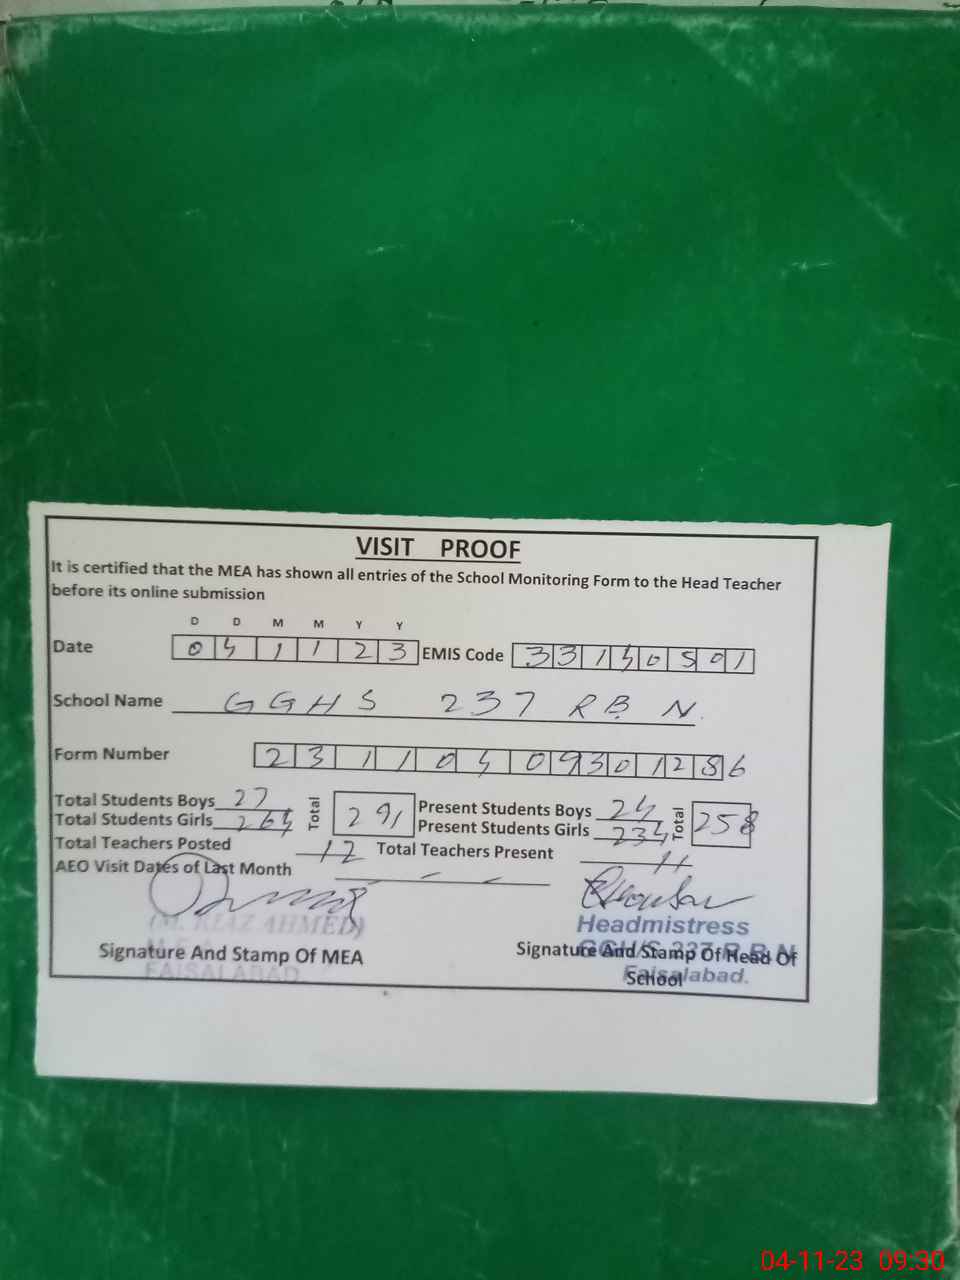 VISIT PROOF
It is certified that the MEA has shown all entries of the School Monitoring Form to the Head Teacher
before its online submission
D D M M Y Y
Date 0 4 1 1 2 3 EMIS Code 3 3 1 4 0 5 0 1
School Name GGHS 237 RB N.
Form Number 2 3 1 1 0 4 0 9 3 0 1 2 8 6
Total Students Boys 27 Total 291 Present Students Boys 24 Total 258
Total Students Girls 264 Present Students Girls 234
Total Teachers Posted 12 Total Teachers Present 11
AEO Visit Dates of Last Month - - -
(M. RIAZ AHMED) Headmistress
Signature And Stamp Of MEA Signature And Stamp Of Head Of
School
GGH/S 237 R.B N
FAISALABAD Faisalabad.
04-11-23 09:30